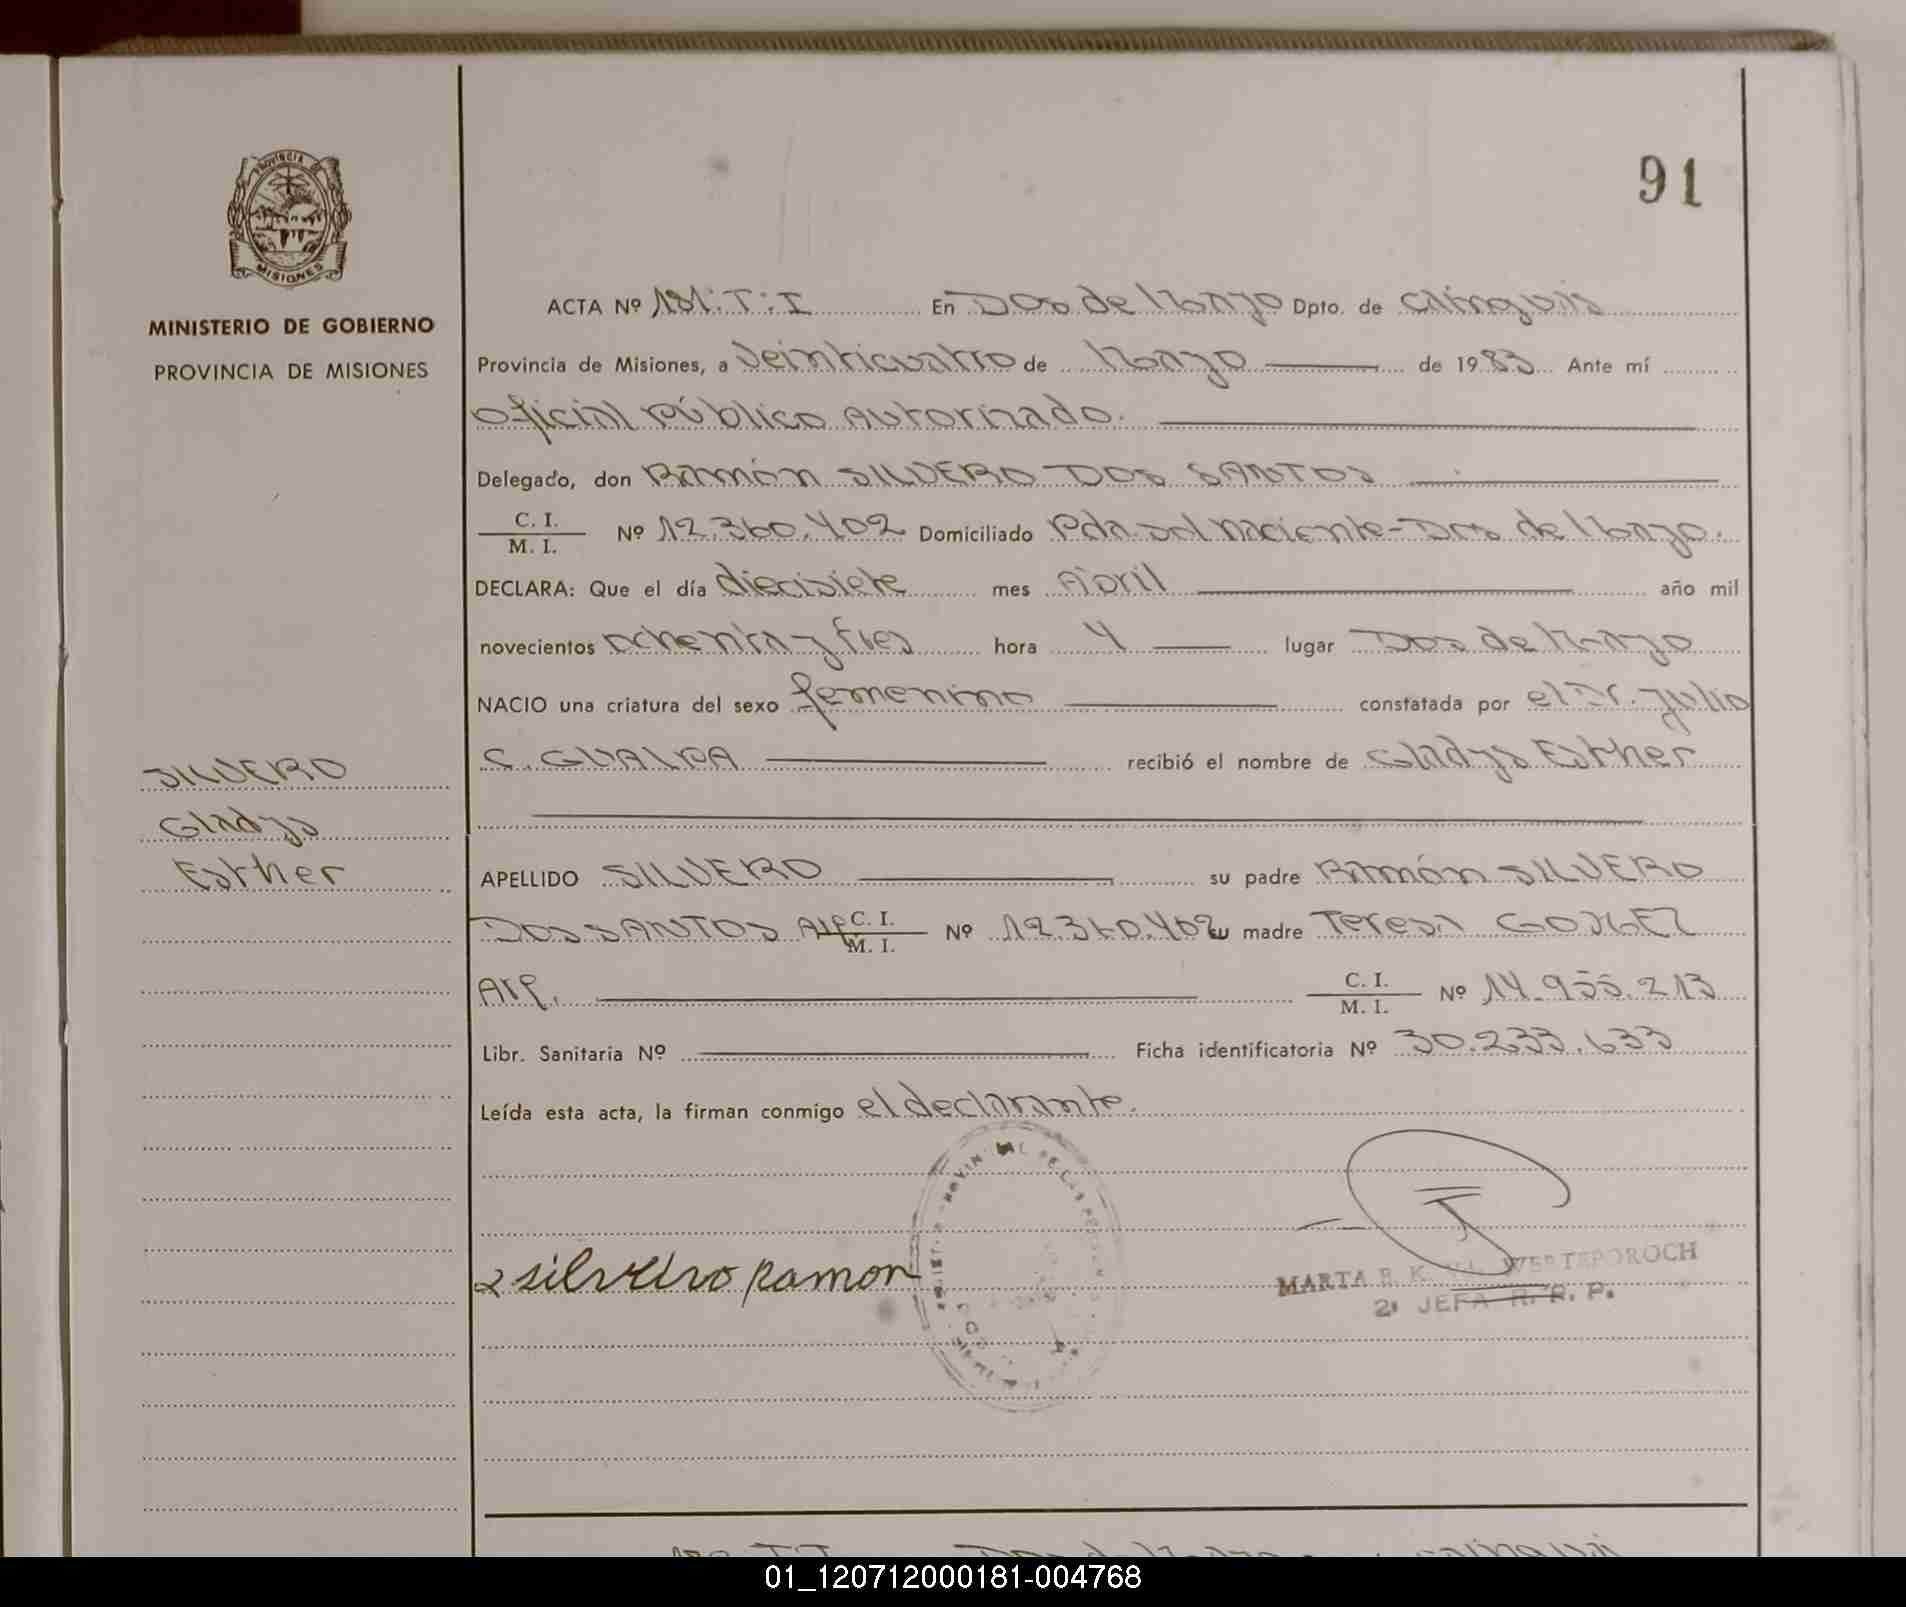 91
PROVINCIA DE
MISIONES
MINISTERIO DE GOBIERNO
PROVINCIA DE MISIONES
ACTA Nº 181: T: I En Dos de Mayo Dpto. de Cainguás
Provincia de Misiones, a Veinticuatro de Mayo de 1983 Ante mí
Oficial Público Autorizado.
Delegado, don Ramón SILVERO DOS SANTOS
C. I.
M. I. Nº 12.360.402 Domiciliado Pda. Sol Naciente-Dos de Mayo.
DECLARA: Que el día diecisiete mes Abril año mil
novecientos ochenta y tres hora 4 lugar Dos de Mayo
NACIO una criatura del sexo femenino constatada por el Dr. Julio
C. GUALPA recibió el nombre de Gladys Esther
SILVERO
Gladys
Esther
APELLIDO SILVERO su padre Ramón SILVERO
DOS SANTOS Arg. C. I.
M. I. Nº 12.360.402 su madre Teresa GOMEZ
Arg. C. I.
M. I. Nº 14.955.213
Libr. Sanitaria Nº Ficha identificatoria Nº 30.233.633
Leída esta acta, la firman conmigo el declarante.
silveiro Ramon
MARTA WERTEPOROCH
2º JEFA R. P.
01_120712000181-004768